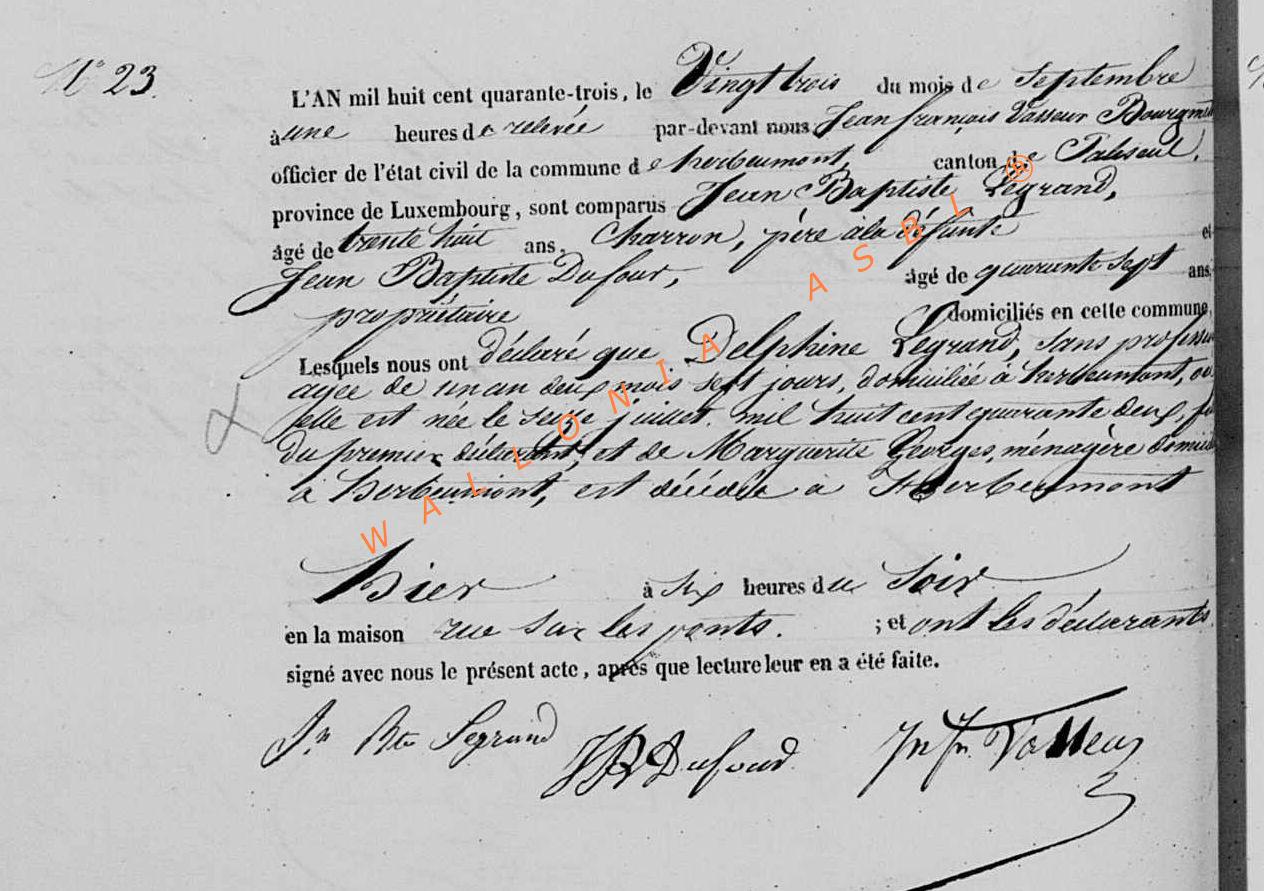 N° 23.
L'AN mil huit cent quarante-trois, le Vingt trois du mois de Septembre
à une heures de relevée par-devant nous Jean françois Vasseur Bourgm
officier de l'état civil de la commune de herbeumont, canton de Paliseul,
province de Luxembourg, sont comparus Jean Baptiste Legrand,
âgé de trente huit ans, Charron, père à la défunte et
Jean Baptiste Dufour, âgé de quarante sept ans,
propriétaire domiciliés en cette commune,
Lesquels nous ont déclaré que Delphine Legrand, sans profess
agée de un an deux mois sept jours, domiciliée à herbeumont, ou
elle est née le seize juillet mil huit cent quarante deux, fi
du premier déclarant, et de Marguerite Georges, ménagère domici
à herbeumont, est décédée à Herbeumont
hier à six heures du Soir
en la maison rue Sur les ponts. ; et ont les déclarants
signé avec nous le présent acte, après que lecture leur en a été faite.
Jn Bte Legrand JB Dufour Jn fn Vasseur
WALLONIA ASBL ®